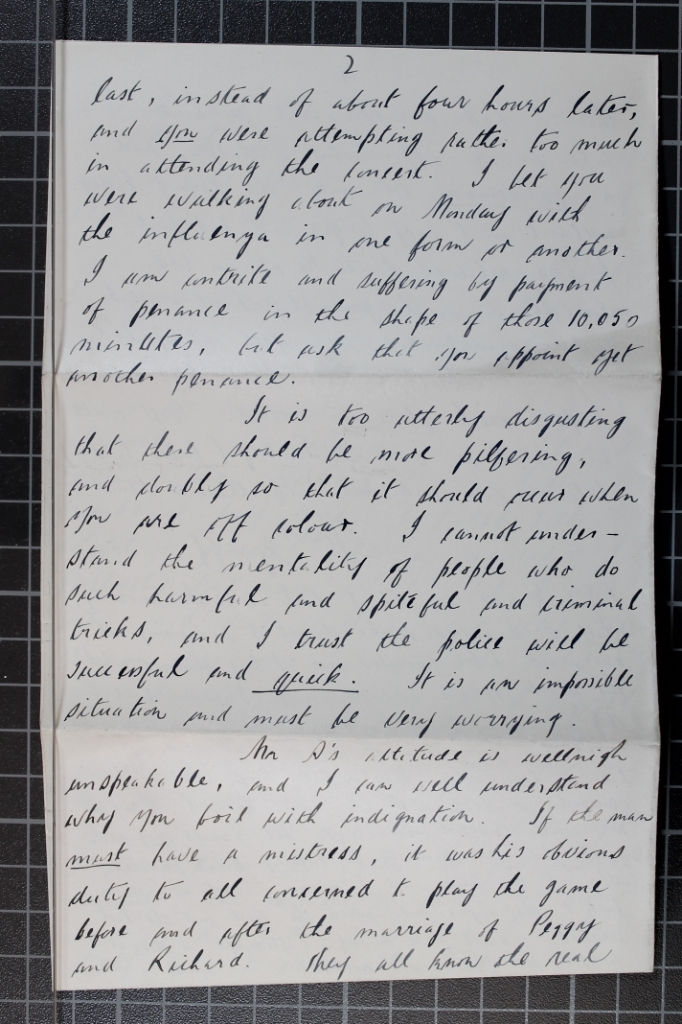 2
last, instead of about four hours later,
and you were attempting rather too much
in attending the concert. I bet you
were walking about on Monday with
the influenza in one form or another.
I am contrite and suffering by payment
of penance in the shape of those 10,050
minutes, but ask that you appoint yet
another penance.
It is too utterly disgusting
that there should be more pilfering,
and doubly so that it should occur when
you are off colour. I cannot under-
stand the mentality of people who do
such harmful and spiteful and criminal
tricks, and I trust the police will be
successful and quick. It is an impossible
situation and must be very worrying.
Mr S's attitude is wellnigh
unspeakable, and I can well understand
why you boil with indignation. If the man
must have a mistress, it was his obvious
duty to all concerned to play the game
before and after the marriage of Peggy
and Richard. They all know the real